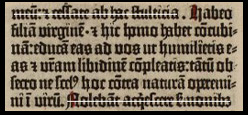 meū: ⁊ cessate ab hac stulticia. Habeo
filiā virginē· ⁊ hic homo habet cōcubi-
nā: educā eas ad vos ut humilietis e-
as ⁊ vr̄am libidinē cōpleatis: tātū ob-
secro ne scelꝰ hoc cōtra naturā op̄emi-
ni ī virū. Nolebāt acq̇escere s̄monibus